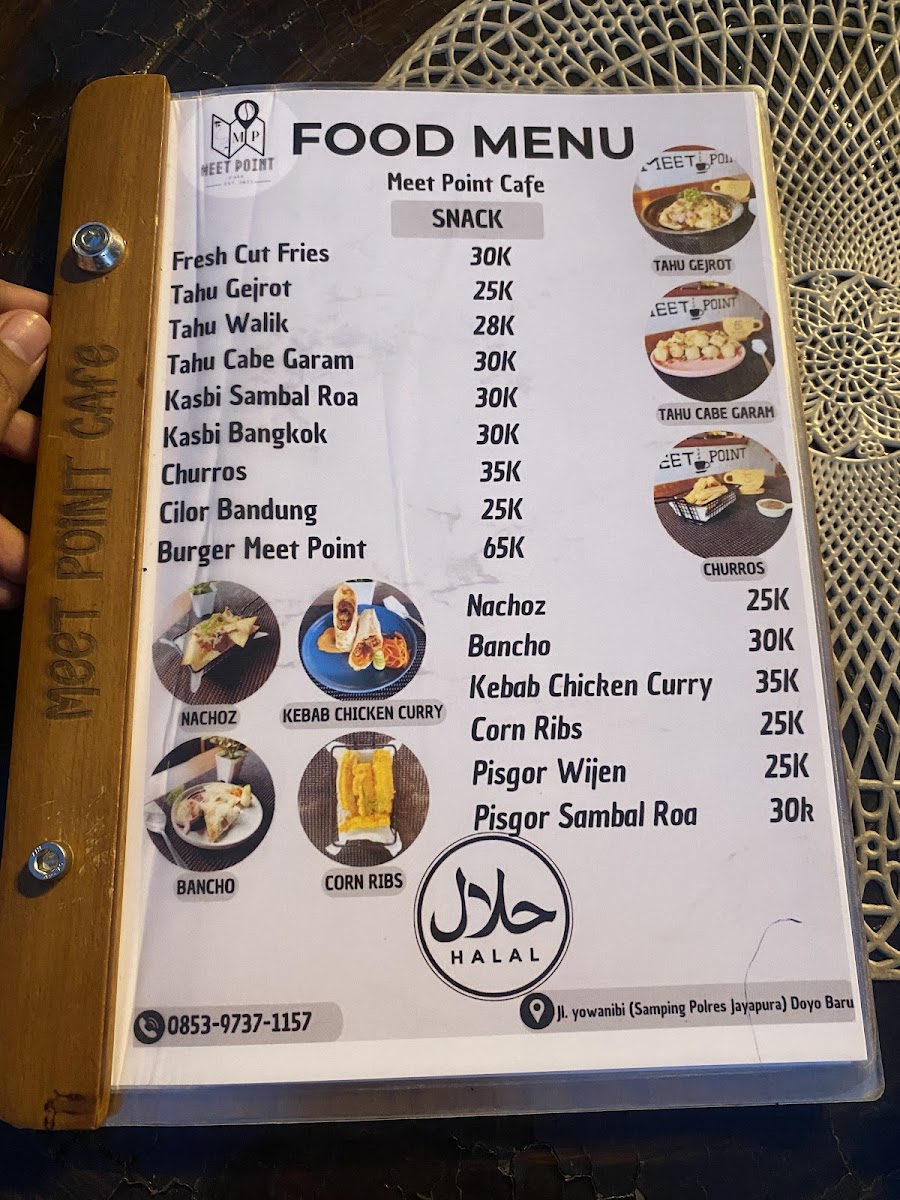 MP
MEET POINT
CAFE
FOOD MENU
Meet Point Cafe
SNACK
Fresh Cut Fries 30K
Tahu Gejrot 25K
Tahu Walik 28K
Tahu Cabe Garam 30K
Kasbi Sambal Roa 30K
Kasbi Bangkok 30K
Churros 35K
Cilor Bandung 25K
Burger Meet Point 65K
MEET POI
TAHU GEJROT
EET POINT
TAHU CABE GARAM
EET POINT
CHURROS
Nachoz 25K
Bancho 30K
Kebab Chicken Curry 35K
Corn Ribs 25K
Pisgor Wijen 25K
Pisgor Sambal Roa 30k
NACHOZ
KEBAB CHICKEN CURRY
BANCHO
CORN RIBS
حلال
HALAL
0853-9737-1157
Jl. yowanibi (Samping Polres Jayapura) Doyo Baru
MEET POINT CAFE